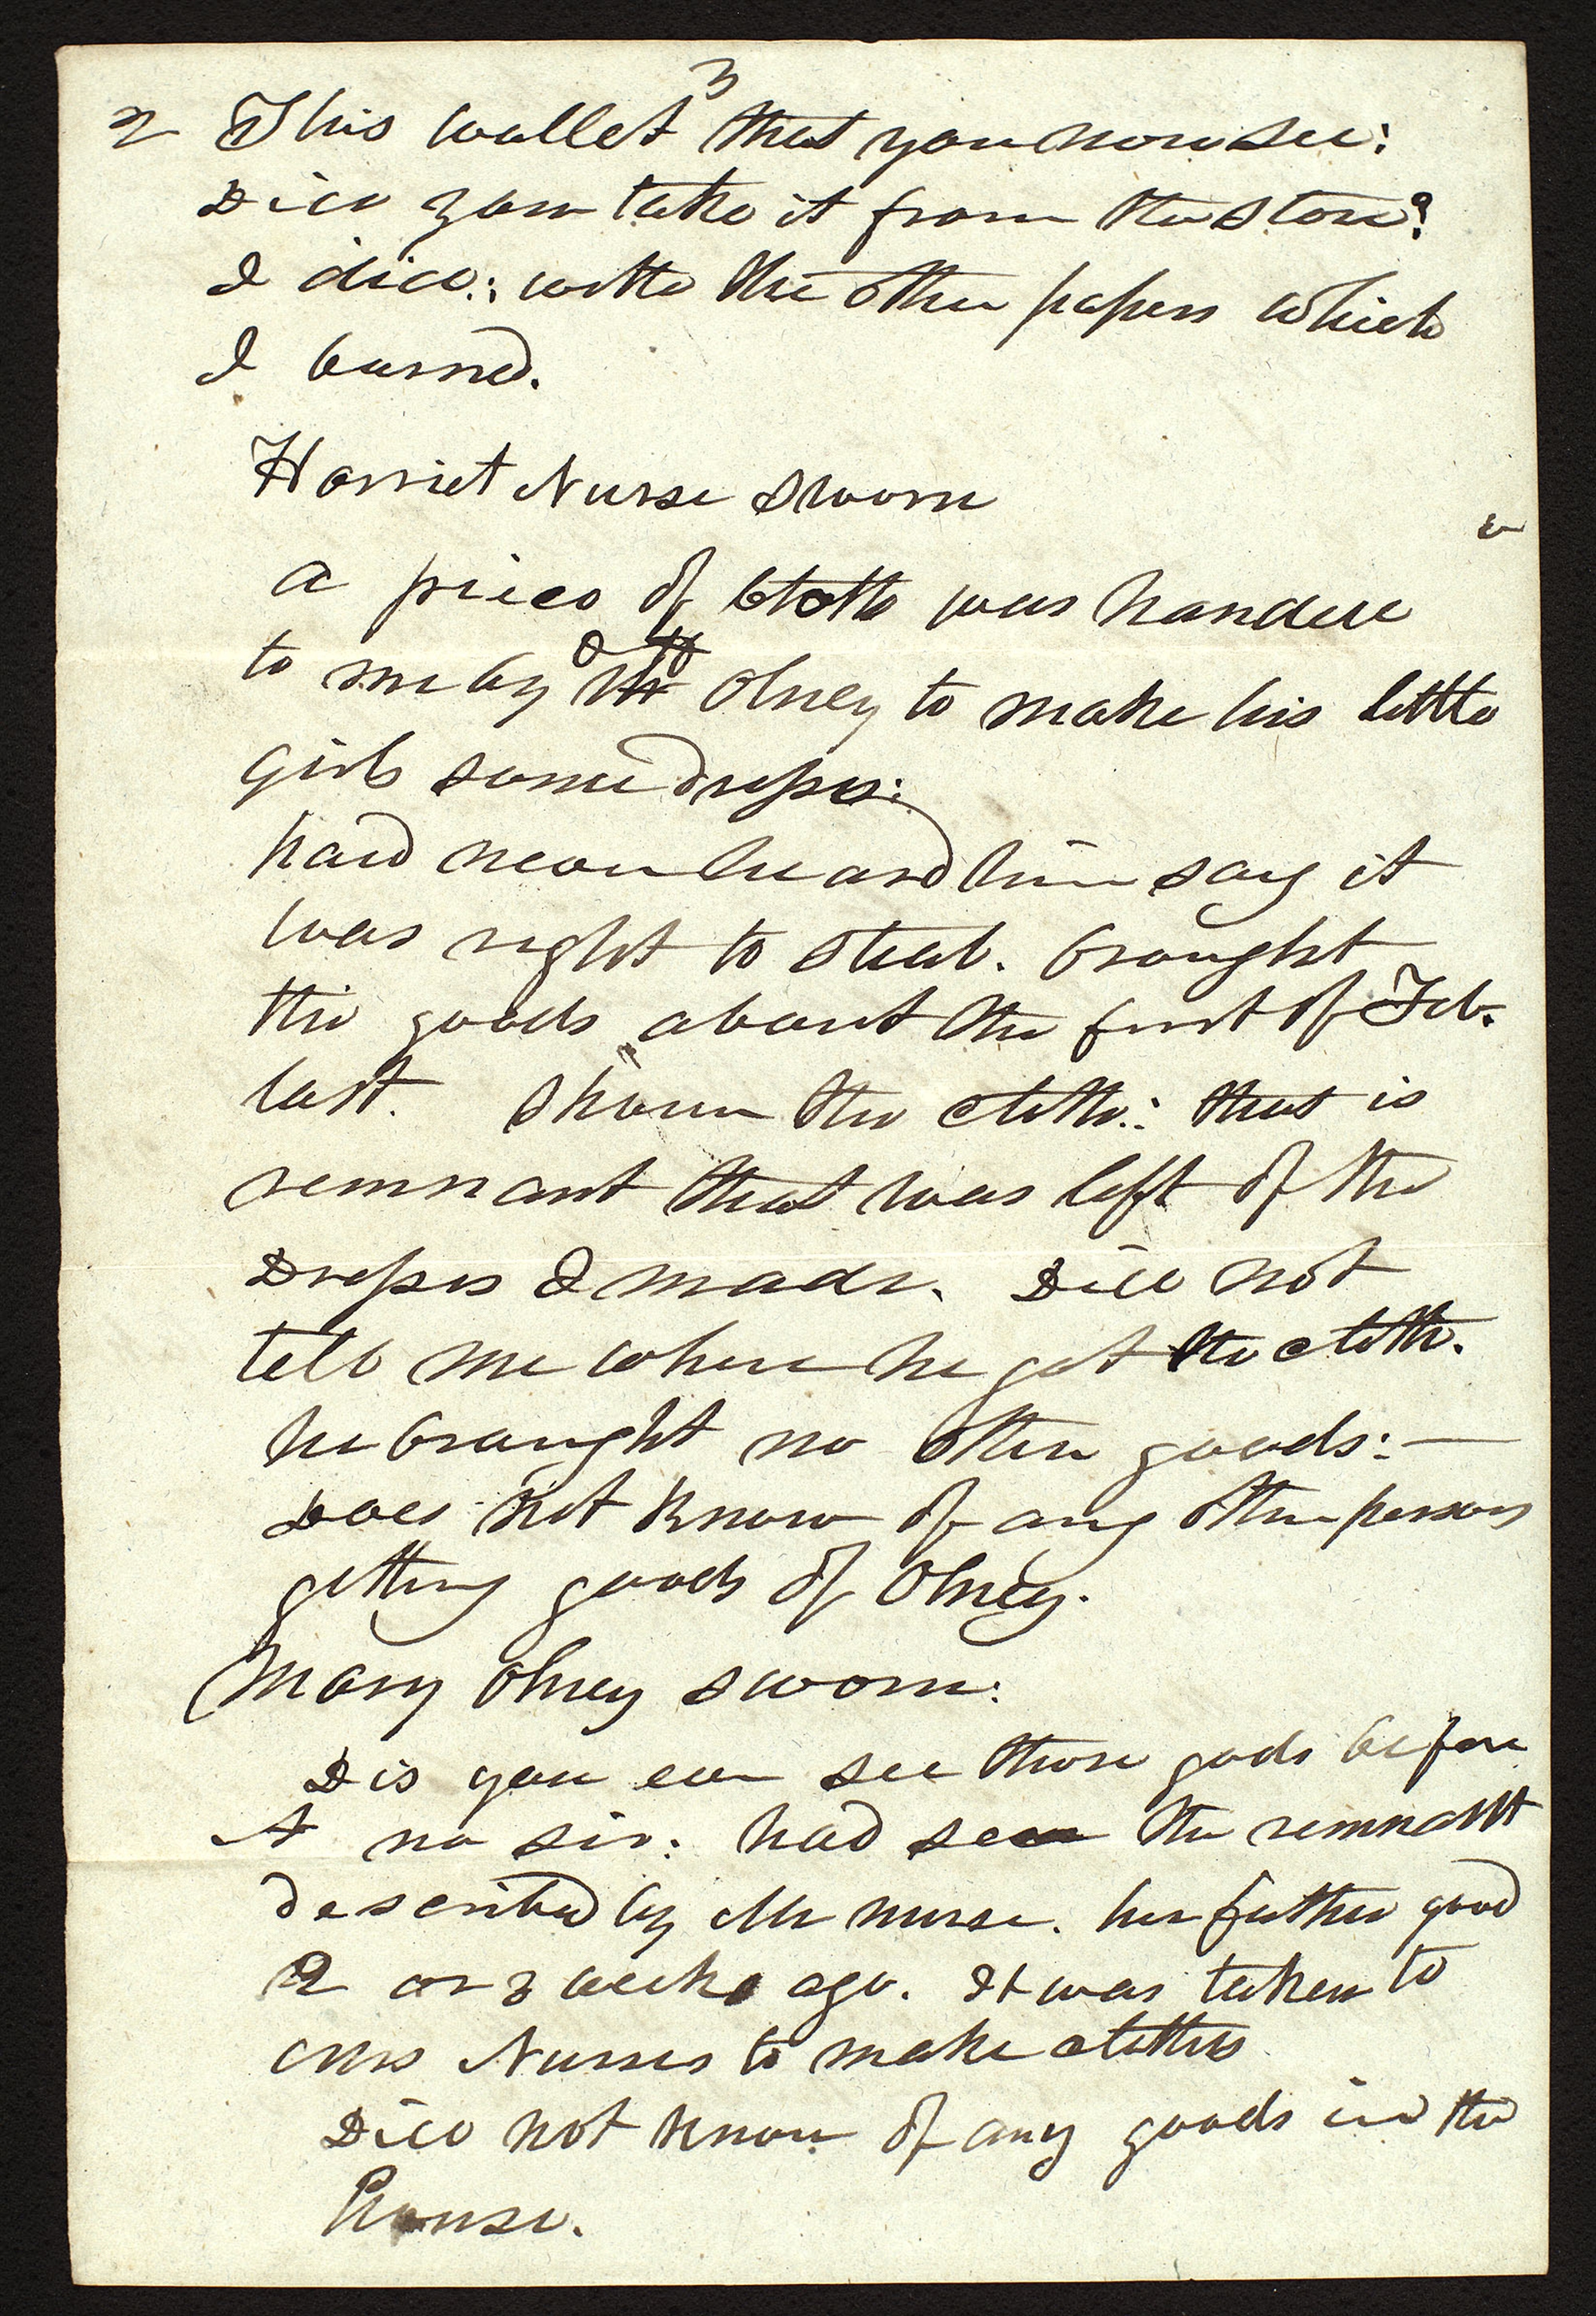 3
2 This wallet that you now see:
Did you take it from the Store?
I did: with the other papers which
I burned.
Harriet Nurse Sworn
a piece of Cloth was handed
to me by O Olney to make his little
girls some dresses:
had never heard him say it
was right to steal. brought
the goods about the first of Feb.
last. Shown the cloth: that is
remnant that was left of the
Dresses I made. Did not
tell me where he got the cloth.
he brought no other goods:—
Does not know of any other persons
getting goods of Olney.
Mary Olney sworn:
Did you ever see those goods before
A no sir: had seen the remnant
described by Mr nurse. her father good
2 or 3 weeks ago. It was taken to
Mrs Nurses to make clothes
Did not know of any goods in the
house.